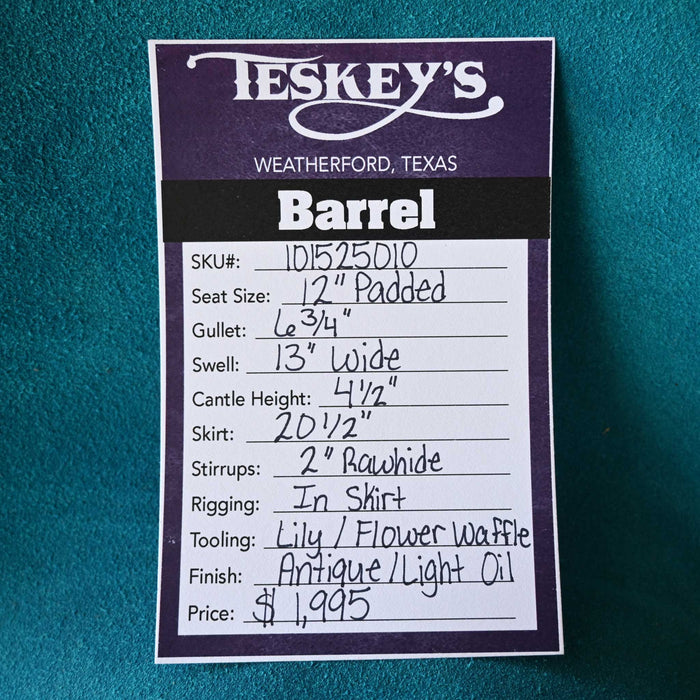 TESKEY'S
WEATHERFORD, TEXAS
Barrel
SKU#: 101525010
Seat Size: 12" Padded
Gullet: 6 3/4"
Swell: 13" Wide
Cantle Height: 4 1/2"
Skirt: 20 1/2"
Stirrups: 2" Rawhide
Rigging: In Skirt
Tooling: Lily / Flower Waffle
Finish: Antique / Light Oil
Price: $ 1,995